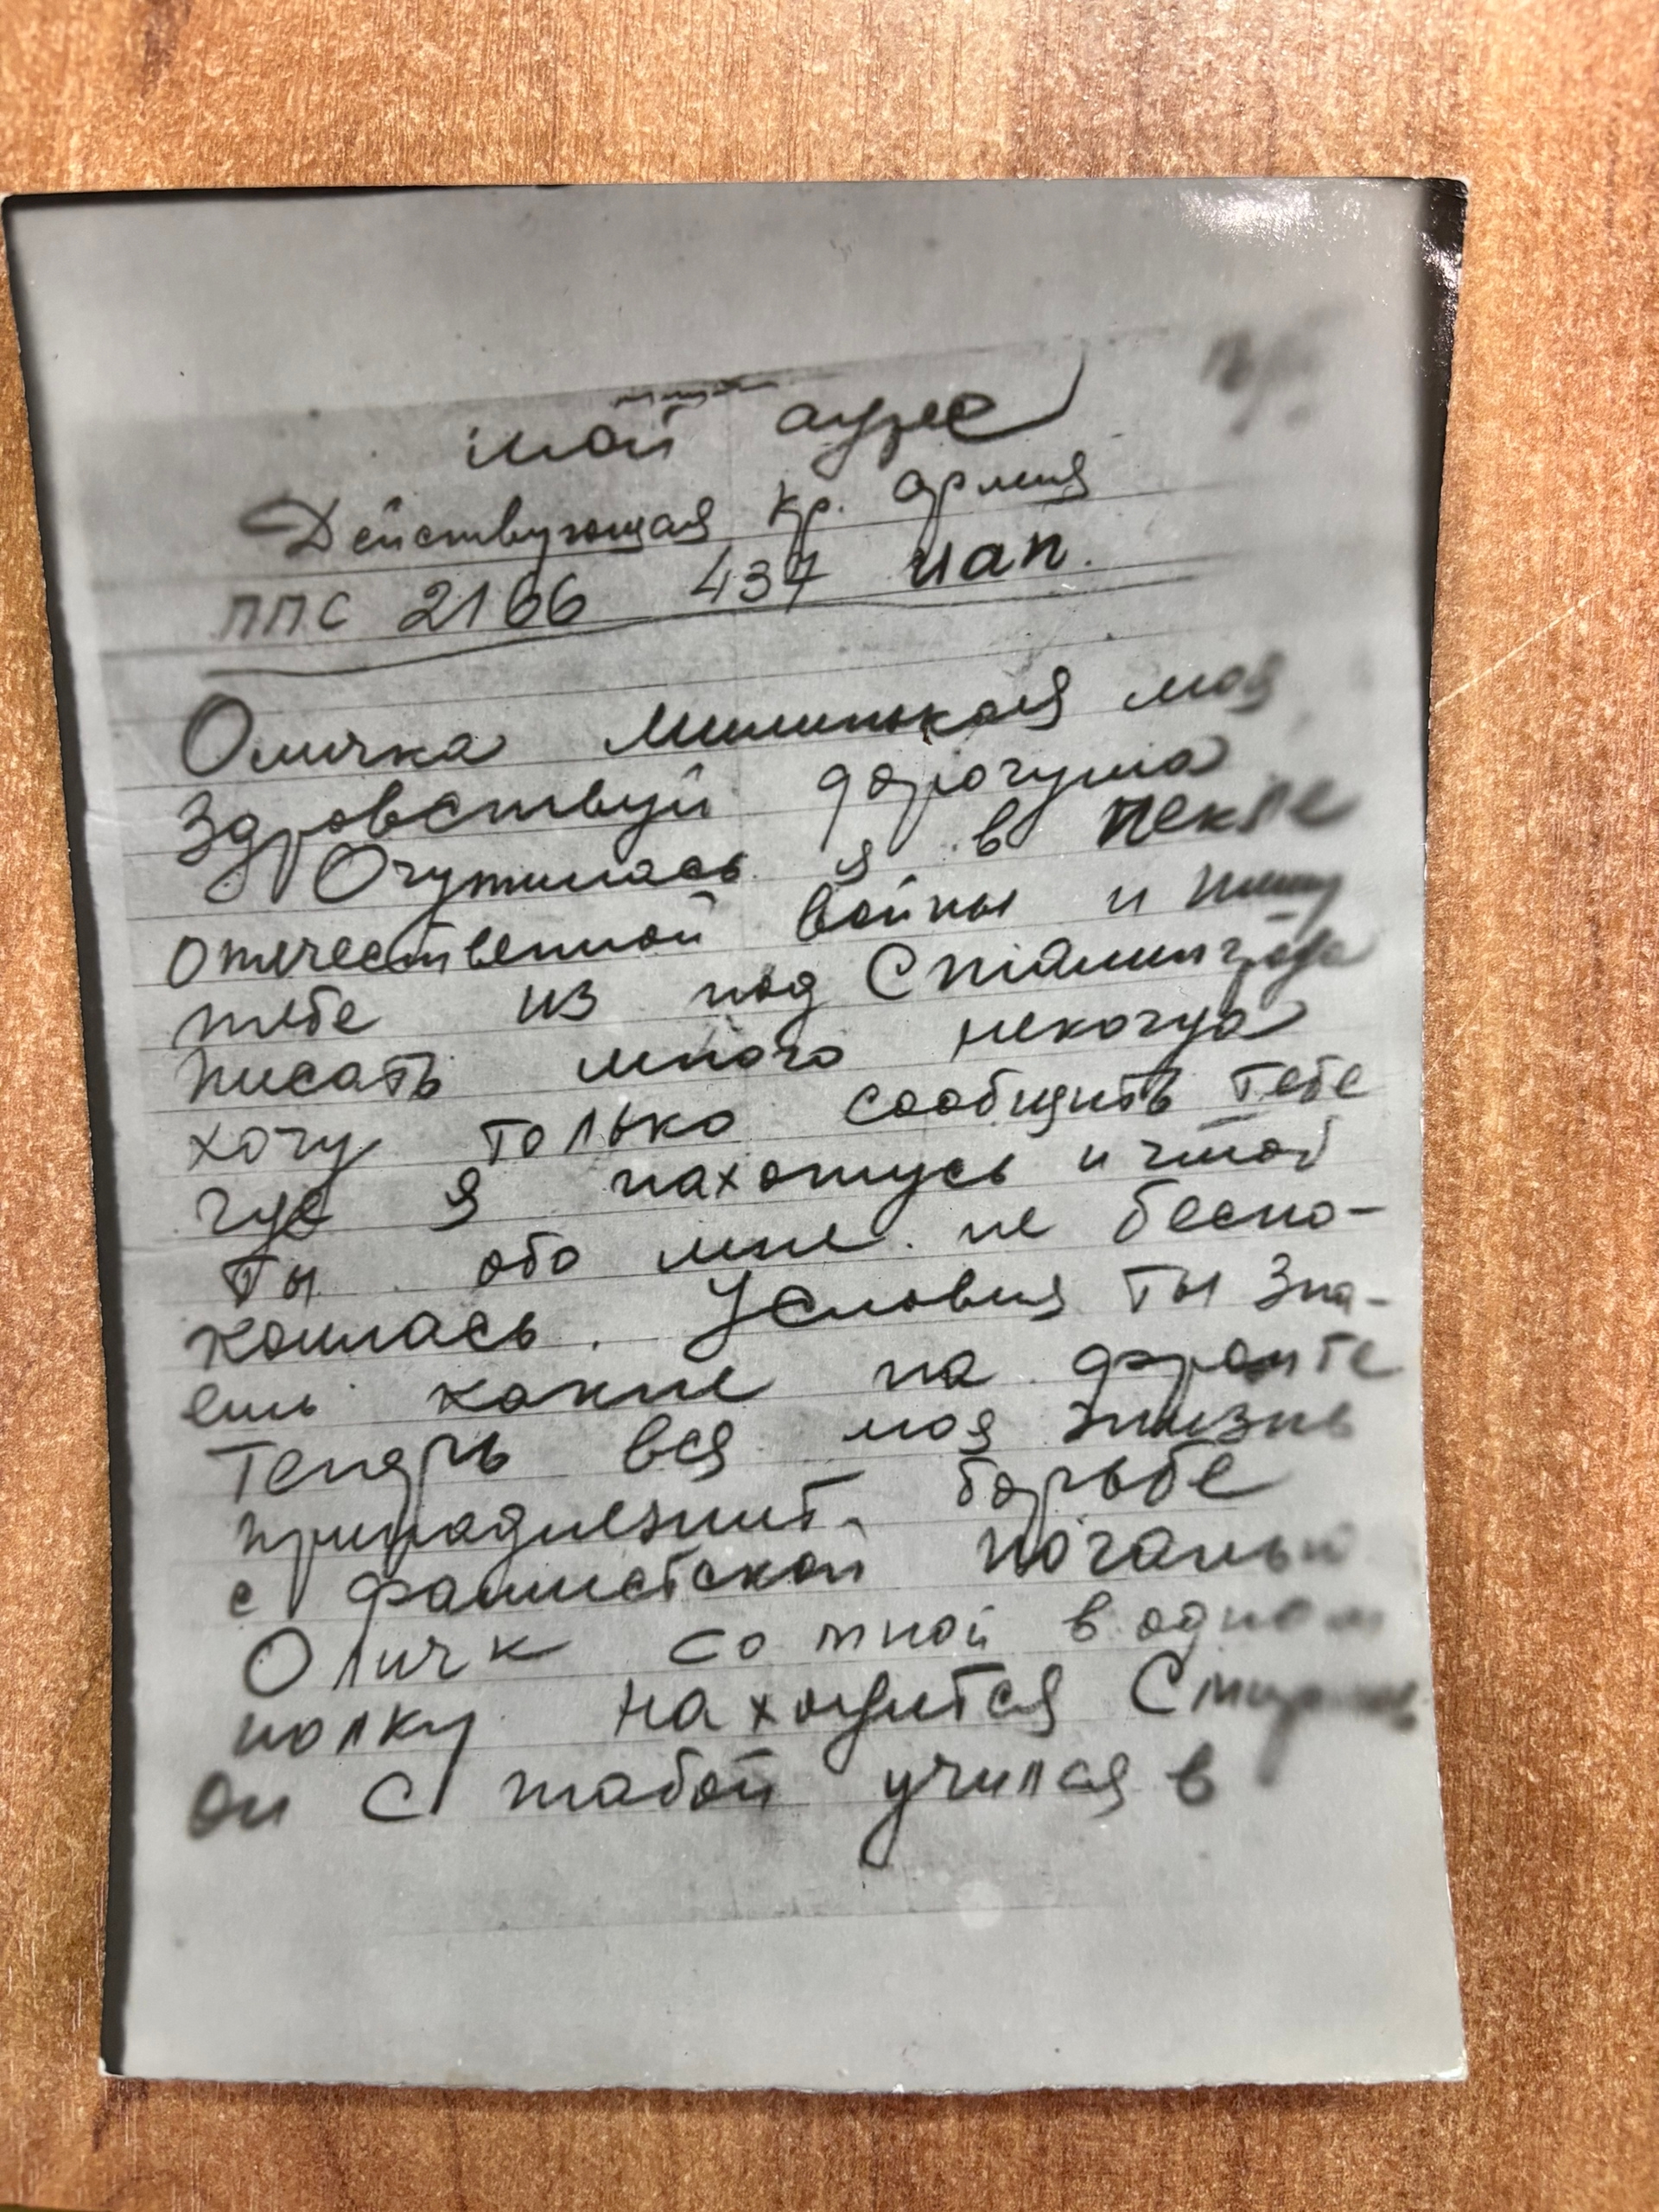 мой адрес
Действующая кр. армия
ППС 2166 437 иап.
Оличка милинькая моя
Здравствуй дорогуша
Очутилась я в пекле
отечественной войны и пишу
тебе из под Сталинграда
писать много некогда
хочу только сообщить тебе
где я нахожусь и чтоб
ты обо мне не беспо-
коилась. Условия ты зна-
ешь какие на фронте
Теперь вся моя жизнь
принадлежит борьбе
с фашистской поганью
Оличк со мной в одном
полку находится
он с тобой учился в